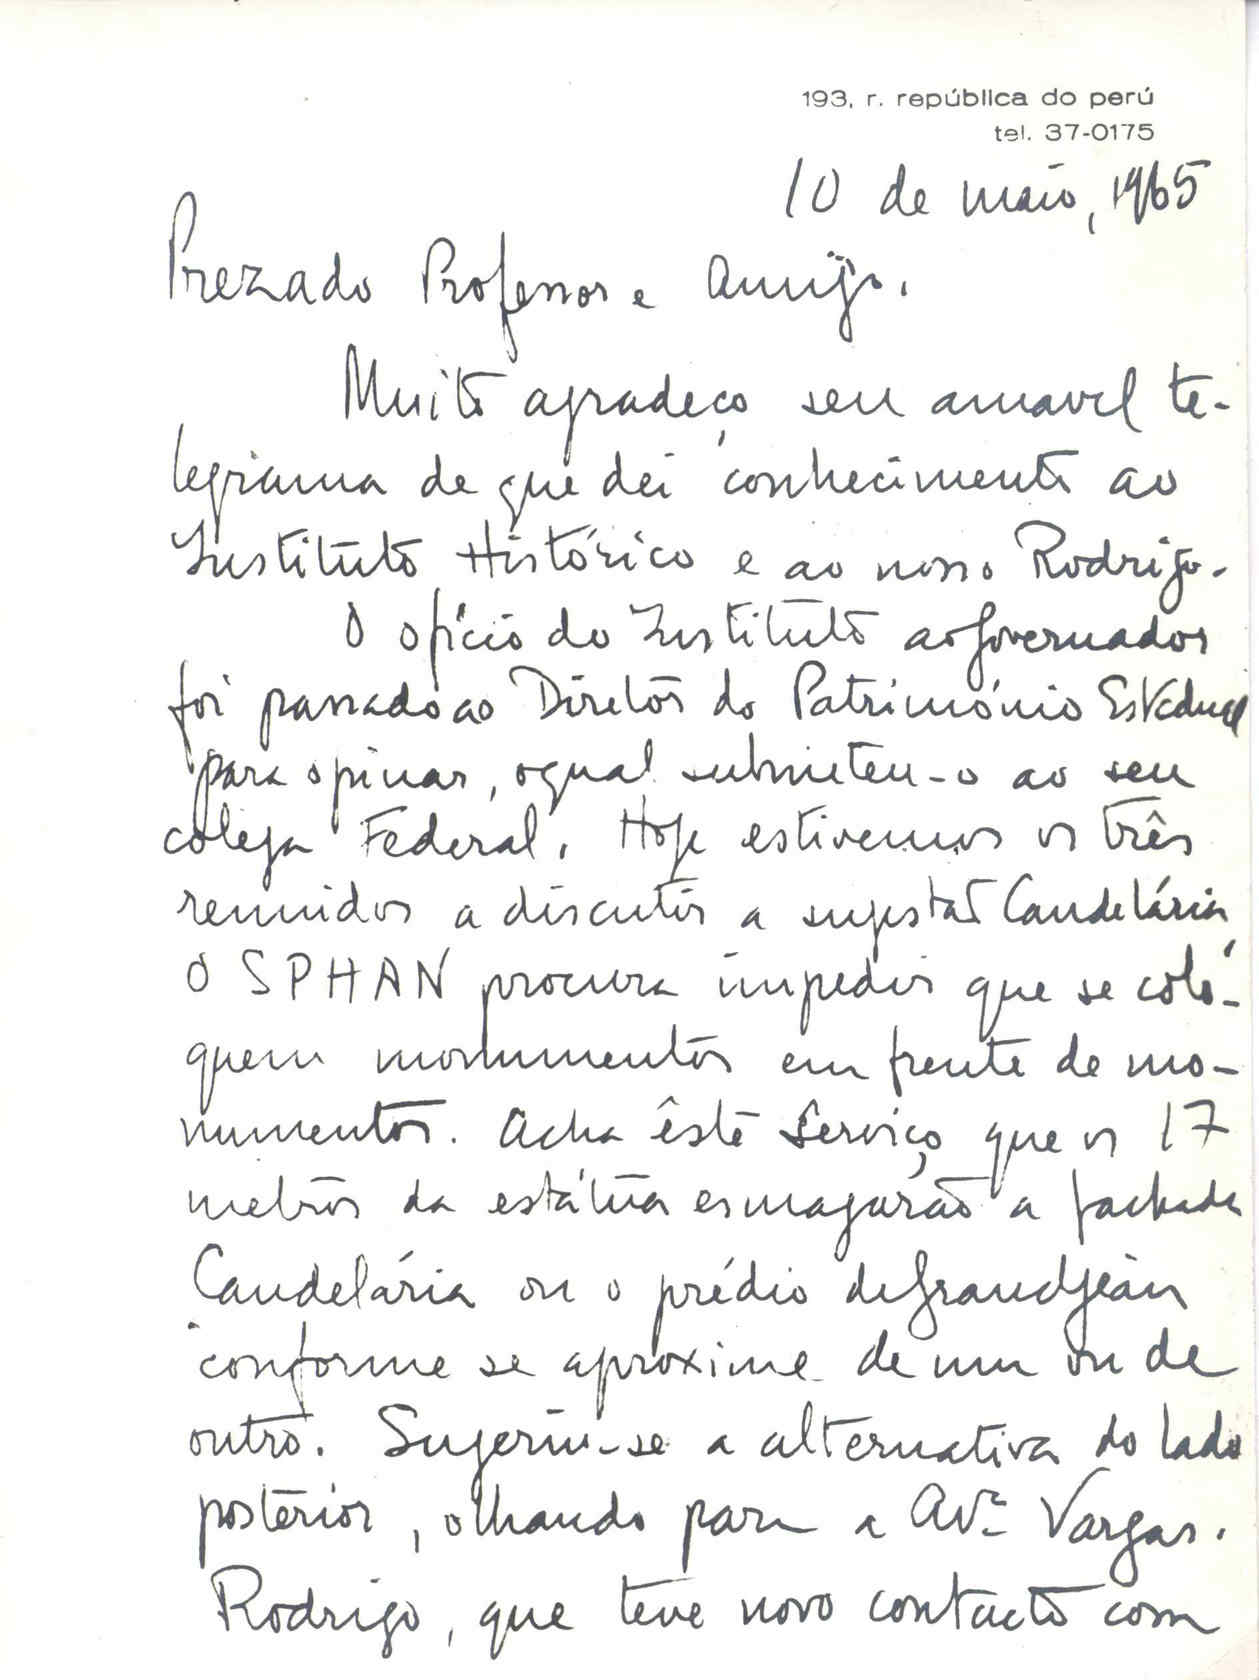 193, r. república do perú
tel. 37-0175
10 de maio, 1965
Prezado Professor e Amigo.
Muito agradeço seu amavel te-
legrama de que dei conhecimento ao
Instituto Histórico e ao nosso Rodrigo.
O ofício do Instituto ao Governador
foi passado ao Diretor do Patrimônio Estadual
para opinar, o qual submeteu-o ao seu
colega Federal. Hoje estivemos os três
reunidos a discutir a sugestão Candelária.
O SPHAN procura impedir que se colo-
quem monumentos em frente de mo-
numentos. Acha êste Serviço que os 17
metros da estátua esmagarão a fachada
Candelária ou o prédio de Grandjean
conforme se aproxime de um ou de
outro. Sugeriu-se a alternativa do lado
posterior, olhando para a Avª Vargas.
Rodrigo, que teve novo contacto com